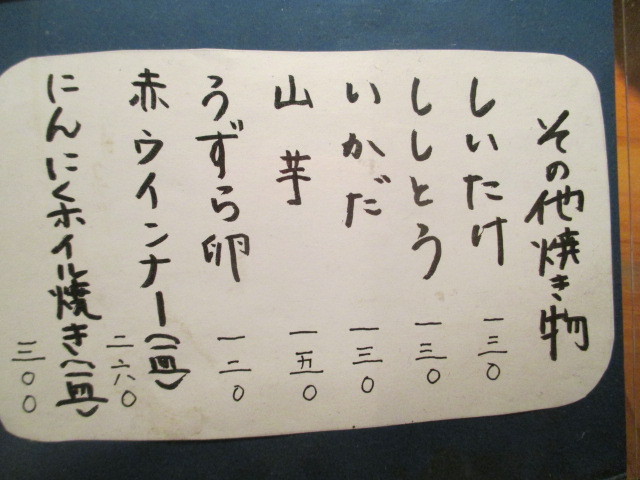 その他焼き物
しいたけ 一三〇
ししとう 一三〇
いかだ 一三〇
山芋 一五〇
うずら卵 一二〇
赤ウインナー(一皿) 二六〇
にんにくホイル焼き(一皿) 三〇〇